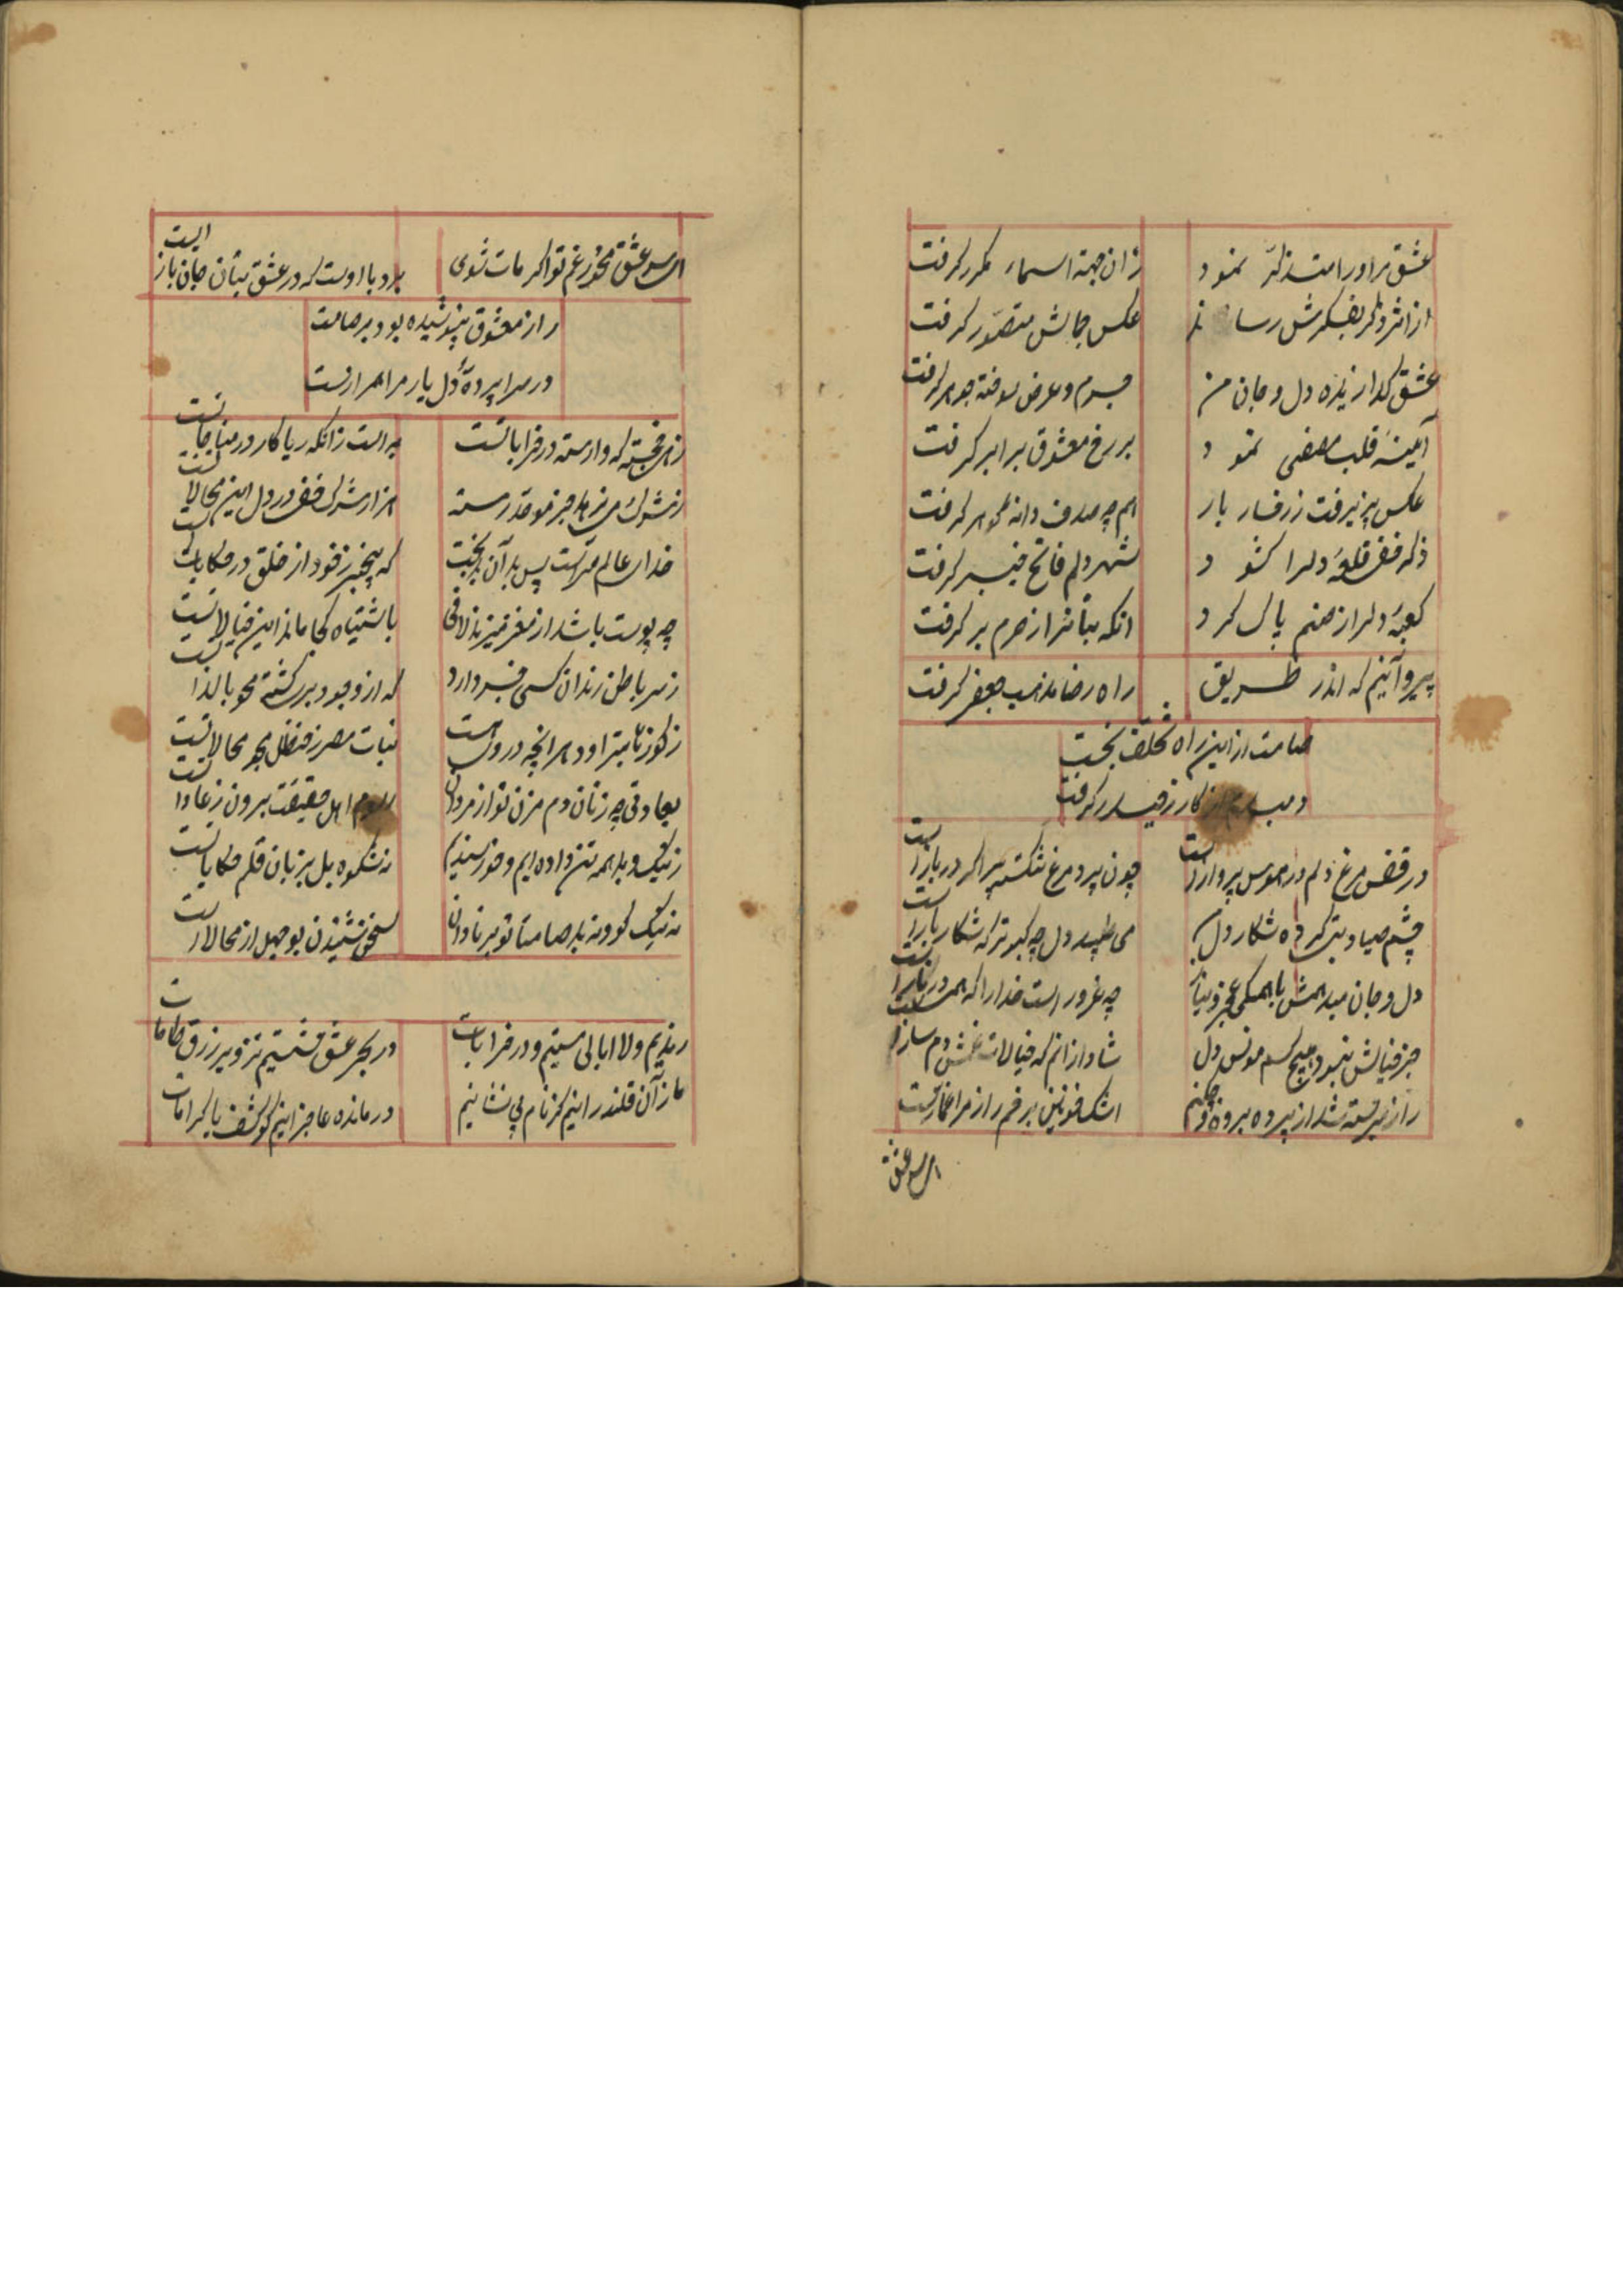 عشق مر اورا متذکر نمود
زان جهة اسماء مکرر گرفت
از اثر ذکر بفکرش رساند
عکس جمالش متصور گرفت
عشق گدازنده دل و جان من
جرم و عرض سوخته جوهر گرفت
آئینه قلب مصفی نمود
بر رخ معشوق برابر گرفت
عکس پذیرفت ز رخسار یار
همچه صدف دانه گوهر گرفت
ذکر خفی قلعه دلرا کشود
شهر دلم فاتح خیبر گرفت
کعبه دلرا ز صنم پاک کرد
انکه بتانرا ز حرم بر گرفت
پیرو آنیم که اندر طریق
راه رضا مذهب جعفر گرفت
صامت از این راه تخلف نجست
کار ز حیدر گرفت
در قفس مرغ دلم در هوس پرواز است
چون پرد مرغ شکسته پر اگر در باز است
چشم صیاد بتی کرده شکار دل
می طپد دل چه کبوتر که شکار باز است
دل و جان میدهمش با همکی عجز و نیاز
چه غرور است خدارا که همه در ناز است
جز خیالش نبود هیچ کسم مونس دل
شاد از انم که خیالات غمش دمساز است
راز سربسته شد از پرده برون چکنم
اشک خونین برخم راز مرا غماز است
ای سر عشق
ای سر عشق مخور غم تو اگر مات شوی
برد با اوست که در عشق بتان جان باز است
راز معشوق بپوشیده بود بر صامت
در سراپرده دل یار مرا همراز است
زهی خجسته که وارسته در خراباتست
به است زانکه ریاکار در مناجاتست
ز شرک می نرهد جز موحد رسته
هزار شرک خفی در دل این محالاتست
خدای عالم سر است پس بد آن بدبخت
که بیخبر ز خود از خلق در حکایات است
چه پوست باشد از مغز خیزند لافی
باشتباه کجا ماند این خیالاتست
ز سر باطن رندان کسی خبر دارد
که از وجود برگشته محو بالذاتست
ز کوزه میتراود هر انچه در اوست
نبات مصر ز حنظل مجو محالاتست
بعادتی چه زنان دم مزن تو از مردان
رسوم اهل حقیقت برون ز عادات است
ز نیک و بد همه تن داده ایم و خورسندیم
نه شکوه بل بزبان قلم حکایاتست
نه نیک گو و نه بد صامتا تو بر نادان
سخن شنیدن بوجهل از محالات است
رندیم و لا ابالی مستیم و در خرابات
در بحر عشق شستیم تزویر زرق طامات
ما ز آن قلندرانیم کز نام بی نشانیم
درمانده عاجزانیم کو کشف یا کرامات